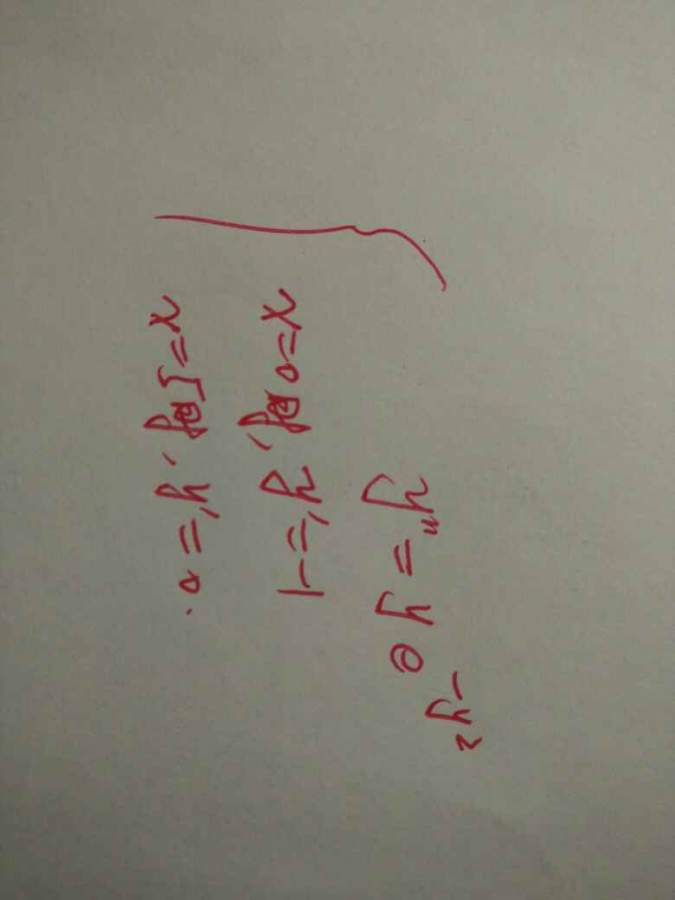 y''=ye^-y²
x=0时,y'=1
x=1时,y'=0.